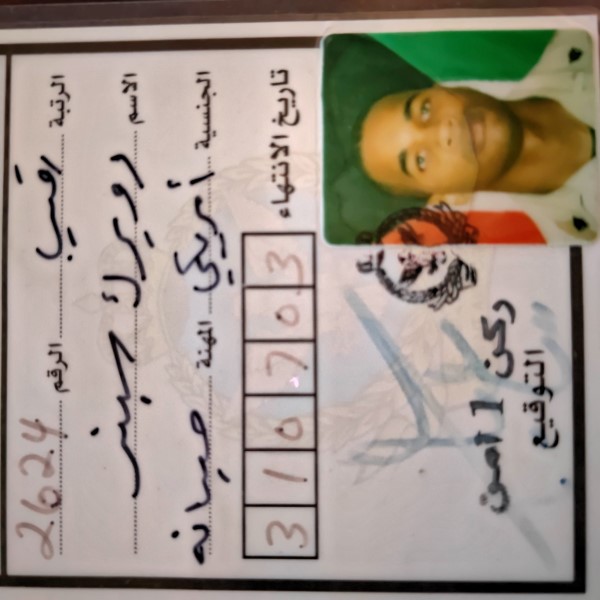 الرتبة رقيب الرقم 2624
الاسم رويرك سبنر
الجنسية أمريكي المهنة صيانه
تاريخ الانتهاء 310703
ركن 1 امن
التوقيع